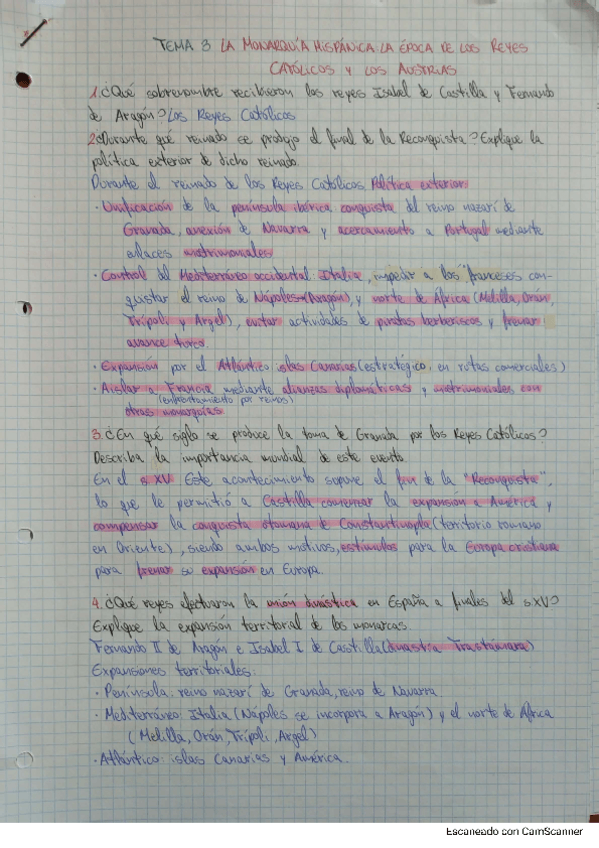 TEMA 3 LA MONARQUÍA HISPÁNICA. LA ÉPOCA DE LOS REYES
CATÓLICOS Y LOS AUSTRIAS
1. ¿Qué sobrenombre recibieron los reyes Isabel de Castilla y Fernando
de Aragón? Los Reyes Católicos
2. ¿Durante qué reinado se produjo el final de la Reconquista? Explique la
política exterior de dicho reinado.
Durante el reinado de los Reyes Católicos. Política exterior:
· Unificación de la península ibérica conquista del reino nazarí de
Granada, anexión de Navarra y acercamiento a Portugal mediante
enlaces matrimoniales
· Control del Mediterráneo occidental: Italia, impedir a los franceses con-
quistar el reino de Nápoles (Aragón), y norte de África (Melilla, Orán,
Trípoli y Argel), evitar actividades de piratas berberiscos y frenar
avance turco.
· Expansión por el Atlántico islas Canarias (estratégico en rutas comerciales)
· Aislar a Francia mediante alianzas diplomáticas y matrimoniales con
(enfrentamiento por reinos)
otras monarquías
3. ¿En qué siglo se produce la toma de Granada por los Reyes Católicos?
Describa la importancia mundial de este evento
En el s.XV. Este acontecimiento supone el fin de la "Reconquista",
lo que le permitió a Castilla comenzar la expansión a América y
compensar la conquista otomana de Constantinopla (territorio romano
en Oriente), siendo ambos motivos, estímulos para la Europa cristiana
para frenar su expansión en Europa.
4. ¿Qué reyes efectuaron la unión dinástica en España a finales del s.XV?
Explique la expansión territorial de los monarcas.
Fernando II de Aragón e Isabel I de Castilla (dinastía Trastámara)
Expansiones territoriales:
· Península: reino nazarí de Granada, reino de Navarra
· Mediterráneo: Italia (Nápoles se incorpora a Aragón) y el norte de África
(Melilla, Orán, Trípoli, Argel)
· Atlántico: islas Canarias y América.
Escaneado con CamScanner